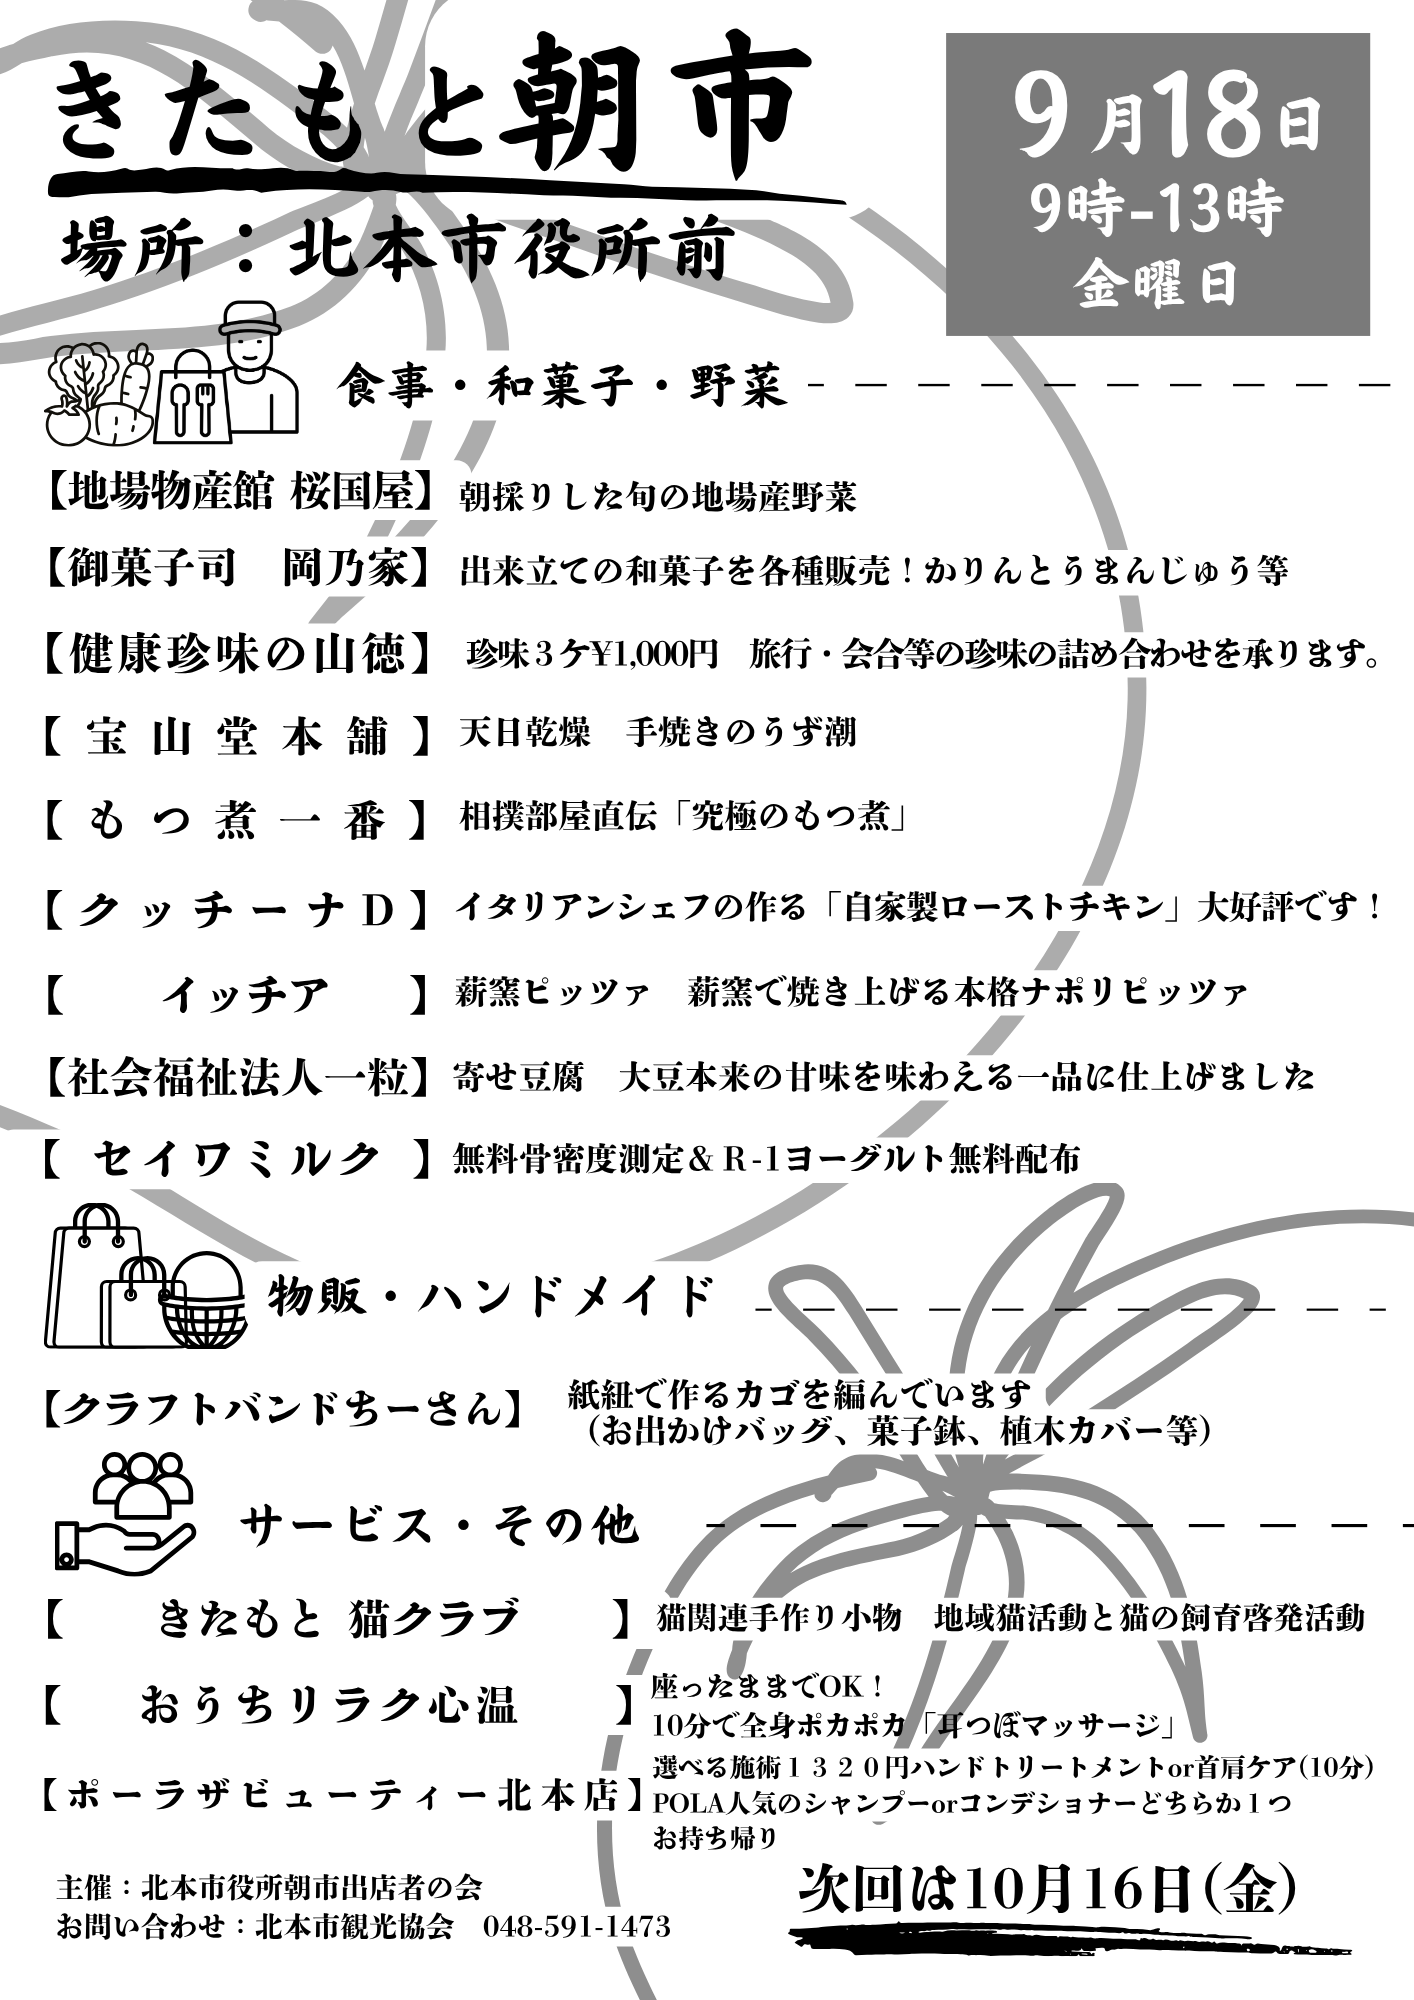 きたもと朝市
9月18日
9時-13時
金曜日
場所：北本市役所前
食事・和菓子・野菜
【地場物産館 桜国屋】 朝採りした旬の地場産野菜
【御菓子司　岡乃家】 出来立ての和菓子を各種販売！かりんとうまんじゅう等
【健康珍味の山徳】 珍味３ケ¥1,000円　旅行・会合等の珍味の詰め合わせを承ります。
【宝山堂本舗】 天日乾燥　手焼きのうず潮
【もつ煮一番】 相撲部屋直伝「究極のもつ煮」
【クッチーナD】 イタリアンシェフの作る「自家製ローストチキン」大好評です！
【イッチア】 薪窯ピッツァ　薪窯で焼き上げる本格ナポリピッツァ
【社会福祉法人一粒】 寄せ豆腐　大豆本来の甘味を味わえる一品に仕上げました
【セイワミルク】 無料骨密度測定＆Ｒ-1ヨーグルト無料配布
物販・ハンドメイド
【クラフトバンドちーさん】 紙紐で作るカゴを編んでいます
（お出かけバッグ、菓子鉢、植木カバー等）
サービス・その他
【きたもと 猫クラブ】 猫関連手作り小物　地域猫活動と猫の飼育啓発活動
【おうちリラク心温】 座ったままでOK！
10分で全身ポカポカ「耳つぼマッサージ」
【ポーラザビューティー北本店】 選べる施術１３２０円ハンドトリートメントor首肩ケア(10分)
POLA人気のシャンプーorコンデショナーどちらか１つ
お持ち帰り
主催：北本市役所朝市出店者の会
お問い合わせ：北本市観光協会　048-591-1473
次回は10月16日(金)